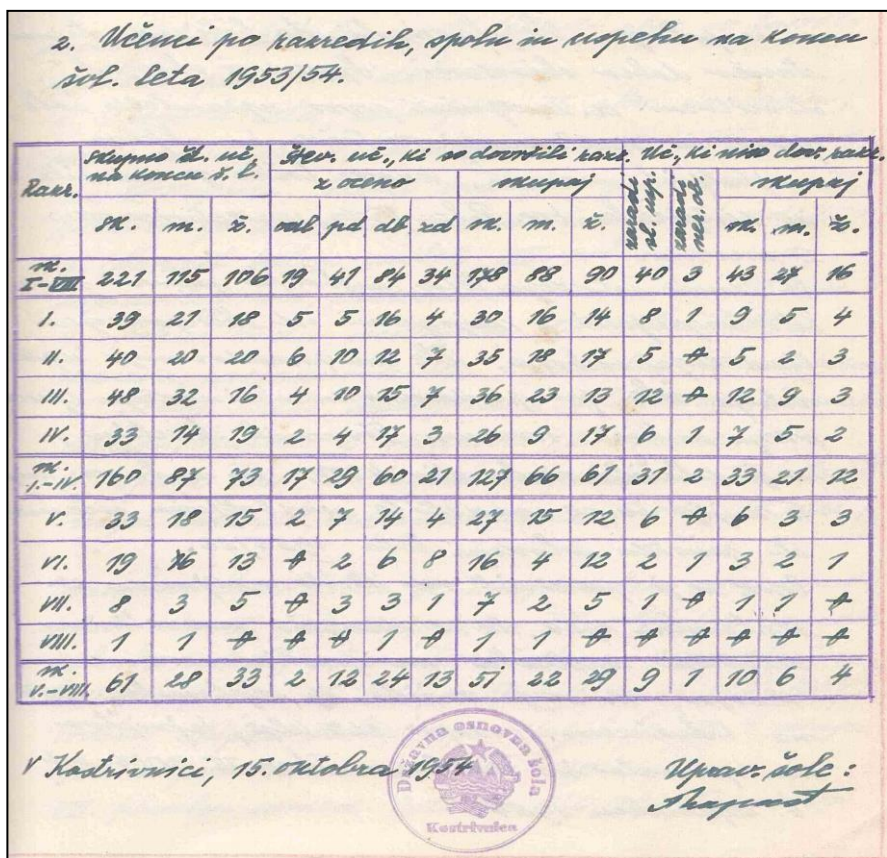 2. Učenci po razredih, spolu in uspehu na koncu
šol. leta 1953/54.
Razr. Skupno št. uč. na koncu š. l. Štev. uč., ki so dovršili razr. Uč., ki niso dovr. razr.
z oceno skupaj zaradi sl. usp. zaradi ner. oc. skupaj
sk. m. ž. odl pd db zd sk. m. ž. sk. m. ž.
sk. I-VIII 221 115 106 19 41 84 34 178 88 90 40 3 43 27 16
I. 39 21 18 5 5 16 4 30 16 14 8 1 9 5 4
II. 40 20 20 6 10 12 7 35 18 17 5 0 5 2 3
III. 48 32 16 4 10 15 7 36 23 13 12 0 12 9 3
IV. 33 14 19 2 4 17 3 26 9 17 6 1 7 5 2
sk. I.-IV. 160 87 73 17 29 60 21 127 66 61 31 2 33 21 12
V. 33 18 15 2 7 14 4 27 15 12 6 0 6 3 3
VI. 19 6 13 0 2 6 8 16 4 12 2 1 3 2 1
VII. 8 3 5 0 3 3 1 7 2 5 1 0 1 1 0
VIII. 1 1 0 0 0 1 0 1 1 0 0 0 0 0 0
sk. V.-VIII. 61 28 33 2 12 24 13 51 22 29 9 1 10 6 4
Državna osnovna šola
Kostrivnica
V Kostrivnici, 15. oktobra 1954
Uprav. šole: